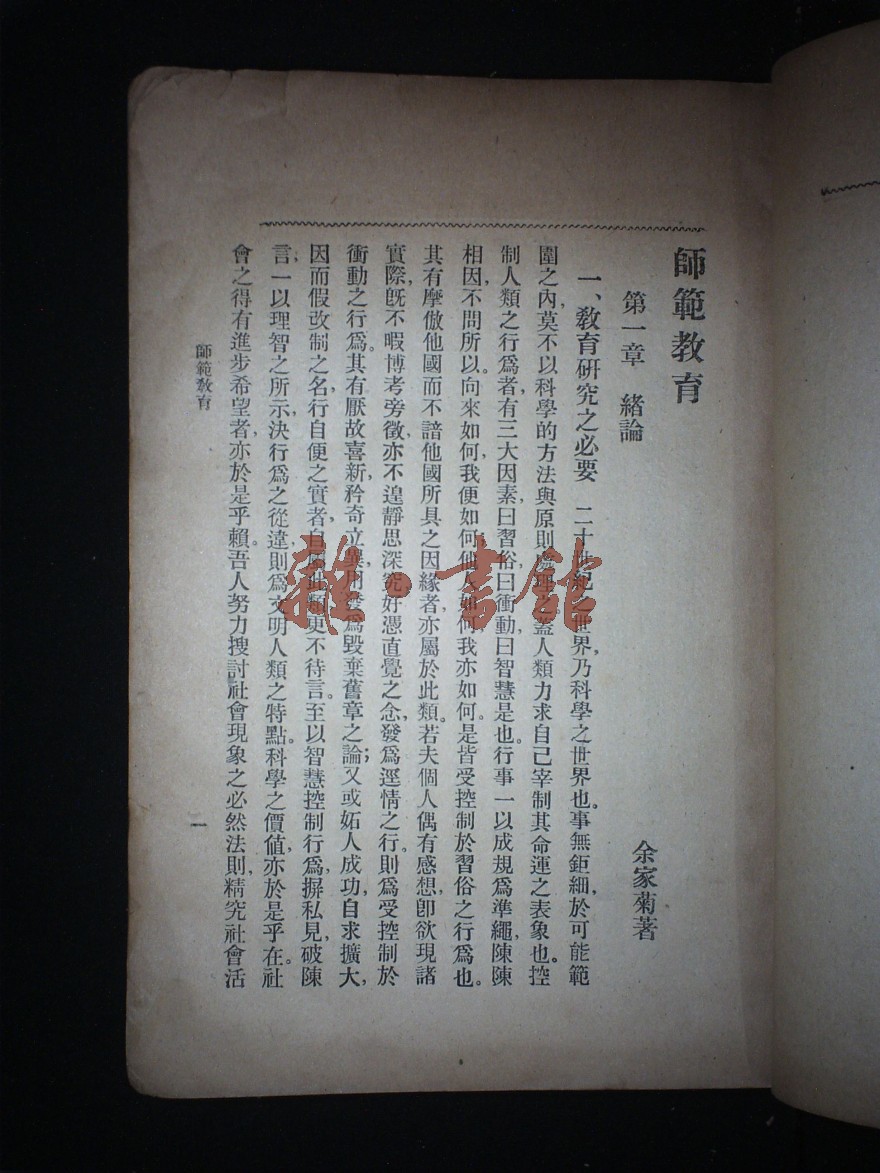 師範教育
第一章　緒論
余家菊著
一、教育研究之必要　二十世紀之世界，乃科學之世界也。事無鉅細，於可能範
圍之內，莫不以科學的方法與原則處理之。蓋人類力求自己宰制其命運之表象也。控
制人類之行爲者有三大因素，曰習俗，曰衝動，曰智慧是也。行事一以成規爲準繩，陳陳
相因，不問所以。向來如何，我便如何，他人如何，我亦如何。是皆受控制於習俗之行爲也。
其有摩倣他國而不諳他國所具之因緣者，亦屬於此類。若夫個人偶有感想，卽欲現諸
實際，旣不暇博考旁徵，亦不遑靜思深究，好憑直覺之念，發爲逕情之行。則爲受控制於
衝動之行爲。其有厭故喜新，矜奇立異，爲毀棄舊章之論；又或妬人成功，自求擴大，
因而假改制之名，行自便之實者，自屬此類，更不待言。至以智慧控制行爲，摒私見，破陳
言，一以理智之所示，決行爲之從違，則爲文明人類之特點。科學之價值，亦於是乎在。社
會之得有進步希望者，亦於是乎賴。吾人努力搜討社會現象之必然法則，精究社會活
師範教育
一
雜·書館